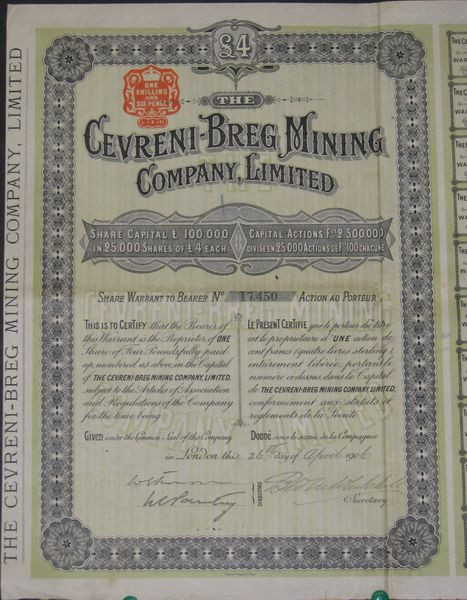 £4
ONE
SHILLING
AND
SIX PENCE
THE
CEVRENI-BREG MINING
COMPANY, LIMITED
SHARE CAPITAL £ 100,000
IN 25,000 SHARES OF £4 EACH
CAPITAL ACTIONS Fcs 2,500,000
DIVISÉ EN 25,000 ACTIONS DE Fcs 100 CHACUNE
SHARE WARRANT TO BEARER No 17.450 ACTION AU PORTEUR.
THIS IS TO CERTIFY that the Bearer of
this Warrant is the Proprietor of ONE
Share of Four Pounds fully paid
up, numbered as above, in the Capital
of THE CEVRENI-BREG MINING COMPANY, LIMITED,
subject to the Articles of Association
and Regulations of the Company
for the time being.
LE PRÉSENT CERTIFIE que le porteur du titre
est le propriétaire d'UNE action de
cent francs (quatre livres sterling)
entièrement libérée portant le
numéro ci-dessus dans le Capital
de THE CEVRENI-BREG MINING COMPANY, LIMITED,
conformément aux statuts et
règlements de la Société.
GIVEN under the Common Seal of the Company
Donné sous le sceau de la Compagnie
in London this 26th day of April 1906
DIRECTORS
Secretary
THE CEVRENI-BREG MINING COMPANY, LIMITED